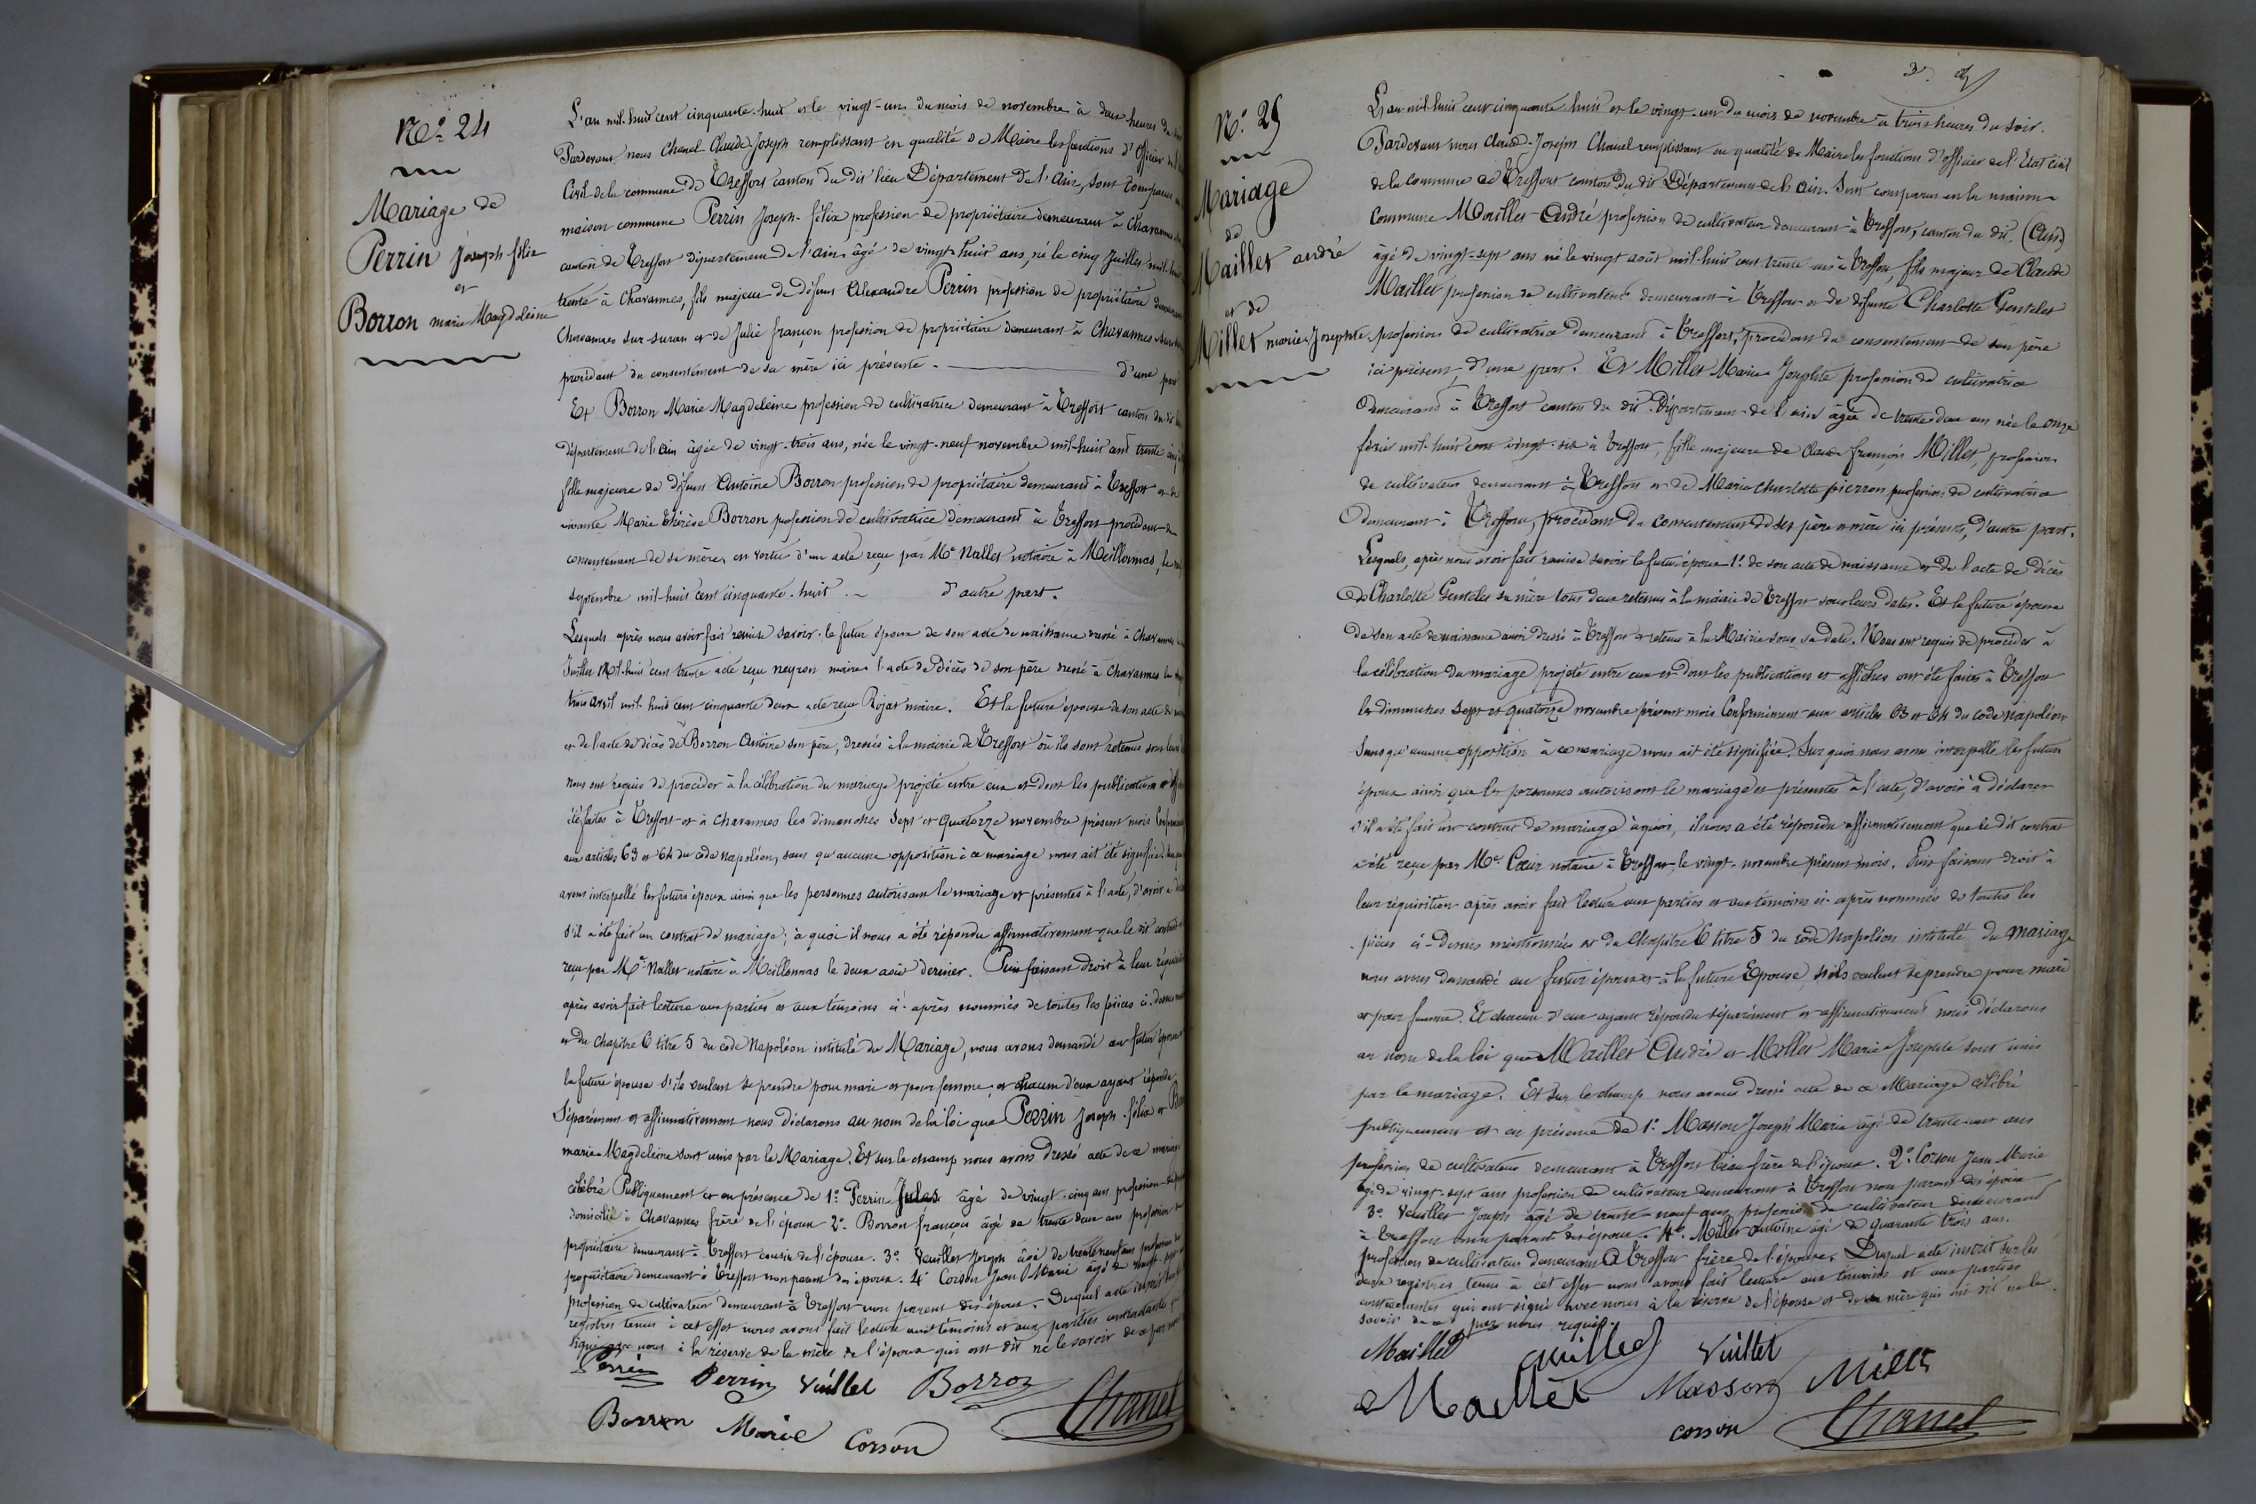 N.o 24
Mariage de
Perrin Joseph félix
et
Borron marie Magdeleine
L'an mil-huit cent cinquante-huit et le vingt-un du mois de novembre à deux heures du
Pardevant nous Chanel Claude-Joseph remplissant en qualité de Maire les fonctions d'Officier de l'
Civil de la commune de Treffort canton du dit lieu Département de l'Ain, sont comparus
maison commune Perrin Joseph-félix profession de propriétaire demeurant à Chavannes
canton de Treffort département de l'ain âgé de vingt-huit ans, né le cinq Juillet mil-huit
trente à Chavannes, fils majeur de défunt Alexandre Perrin profession de propriétaire
Chavannes sur suran et de Julie françon profession de propriétaire demeurant à Chavannes
procédant du consentement de sa mère ici présente. d'une part
Et Borron Marie Magdeleine profession de cultivatrice demeurant à Treffort canton du dit
département de l'ain âgée de vingt-trois ans, née le vingt-neuf novembre mil-huit cent trente
fille majeure de défunt Antoine Borron profession de propriétaire demeurant à Treffort et de
vivante Marie thérèse Borron profession de cultivatrice demeurant à Treffort procédant du
consentement de sa mère, en vertu d'un acte reçu par Me Nallet notaire à Meillonnas, le
septembre mil-huit cent cinquante-huit. d'autre part.
Lesquels après nous avoir fait remise savoir: le futur époux de son acte de naissance dressé à Chavannes
Juillet Mil-huit cent trente acte reçu neyron maire l'acte de décès de son père dressé à Chavannes le
trois avril mil-huit cent cinquante deux acte reçu Pojat maire. Et la future épouse de son acte de
et de l'acte de décès de Borron Antoine son père, dressés à la mairie de Treffort où ils sont retenus sous leurs
nous ont requis de procéder à la célébration du mariage projeté entre eux et dont les publications et
été faites à Treffort et à Chavannes les dimanches sept et quatorze novembre présent mois
aux articles 63 et 64 du code napoléon, sans qu'aucune opposition à ce mariage nous ait été signifiée.
avons interpellé les futurs époux ainsi que les personnes autorisant le mariage et présentes à l'acte, d'avoir à
s'il a été fait un contrat de mariage; à quoi il nous a été répondu affirmativement que le dit contrat
reçu par Me Nallet notaire à Meillonnas le deux août dernier. Puis faisant droit à leur
après avoir fait lecture aux parties et aux témoins ci-après nommés de toutes les pièces ci-dessus
et du chapitre 6 titre 5 du code Napoléon intitulé du Mariage, nous avons demandé au futur époux
la future épouse s'ils veulent se prendre pour mari et pour femme, et chacun d'eux ayant répondu
séparément et affirmativement nous déclarons au nom de la loi que Perrin Joseph-félix et
marie-Magdeleine sont unis par le Mariage. Et sur le champ nous avons dressé acte de ce mariage
célébré Publiquement et en présence de 1o Perrin Jules âgé de vingt-cinq ans profession
domicilié à Chavannes frère de l'époux 2o Borron françois âgé de trente deux ans profession
propriétaire demeurant à Treffort cousin de l'épouse. 3o Vuillet Joseph âgé de trente neuf ans profession
propriétaire demeurant à Treffort non parent des époux. 4o Corson Jean Marie âgé de vingt sept
profession de cultivateur demeurant à Treffort non parent des époux. Duquel acte inscrit
registres tenus à cet effet nous avons fait lecture aux témoins et aux parties contractantes
signé avec nous à la réserve de la mère de l'époux qui ont dit ne le savoir de ce
Perrin Perrin Vuillet Borron
Borron Marie Corson Chanel
N.o 25
Mariage
de
Maillet andré
et de
Millet marie-Josephte
L'an mil-huit cent cinquante huit et le vingt-un du mois de novembre à trois heures du soir.
Pardevant nous Claude-Joseph Chanel remplissant en qualité de Maire les fonctions d'officier de l'Etat civil
de la commune de Treffort canton du dit Département de l'ain. Sont comparus en la maison
commune Maillet André profession de cultivateur demeurant à Treffort, canton du dit, (Ain)
âgé de vingt-sept ans né le vingt août mil-huit cent trente un à Treffort, fils majeur de Claude
Maillet profession de cultivateur demeurant à Treffort et de défunte Charlotte Gentelet
profession de cultivatrice demeurant à Treffort, procédant du consentement de son père
ici présent, d'une part. Et Millet Marie Josephte profession de cultivatrice
demeurant à Treffort canton du dit Département de l'ain âgée de trente deux ans née le onze
février mil-huit cent vingt-six à Treffort, fille majeure de Claude françois Millet, profession
de cultivateur demeurant à Treffort et de Marie Charlotte pierron profession de cultivatrice
demeurant à Treffort, procédant du consentement de ses père et mère ici présents, d'autre part.
Lesquels, après nous avoir fait remise savoir le futur époux 1o de son acte de naissance et de l'acte de décès
de Charlotte Gentelet sa mère tous deux retenus à la mairie de Treffort sous leurs dates. Et la future épouse
de son acte de naissance aussi dressé à Treffort et retenu à la Mairie sous sa date. Nous ont requis de procéder à
la célébration du mariage projeté entre eux et dont les publications et affiches ont été faites à Treffort
les dimanches sept et quatorze novembre présent mois Conformément aux articles 63 et 64 du code napoléon
sans qu'aucune opposition à ce mariage nous ait été signifiée. Sur quoi nous avons interpellé les futurs
époux ainsi que les personnes autorisant le mariage et présentes à l'acte, d'avoir à déclarer
s'il a été fait un contrat de mariage à quoi, il nous a été répondu affirmativement que le dit contrat
a été reçu par Me Cœur notaire à Treffort, le vingt novembre présent mois. Puis faisant droit à
leur réquisition après avoir fait lecture aux parties et aux témoins ci-après nommés de toutes les
pièces ci-dessus mentionnées et du chapitre 6 titre 5 du code Napoléon intitulé du Mariage
nous avons demandé au futur époux et à la future Epouse s'ils veulent se prendre pour mari
et pour femme. Et chacun d'eux ayant répondu séparément et affirmativement nous déclarons
au nom de la loi que Maillet André et Millet Marie Josephte sont unis
par le mariage. Et sur le champ nous avons dressé acte de ce Mariage célébré
publiquement et en présence de 1o Masson Joseph Marie âgé de trente ans
profession de cultivateur demeurant à Treffort beau frère de l'époux. 2o Corson Jean Marie
âgé de vingt-sept ans profession de cultivateur demeurant à Treffort non parent des époux
3o Vuillet Joseph âgé de trente-neuf ans profession de cultivateur demeurant
à Treffort non parent des époux. 4o Millet Antoine âgé de quarante trois ans.
profession de cultivateur demeurant à Treffort frère de l'épouse. Duquel acte inscrit sur les
deux registres tenus à cet effet nous avons fait lecture aux témoins et aux parties
contractantes qui ont signé avec nous à la réserve de l'épouse et de sa mère qui ont dit ne le
savoir de ce par nous requis.
Maillet Millet Vuillet
Maillet Masson Millet
corson Chanel